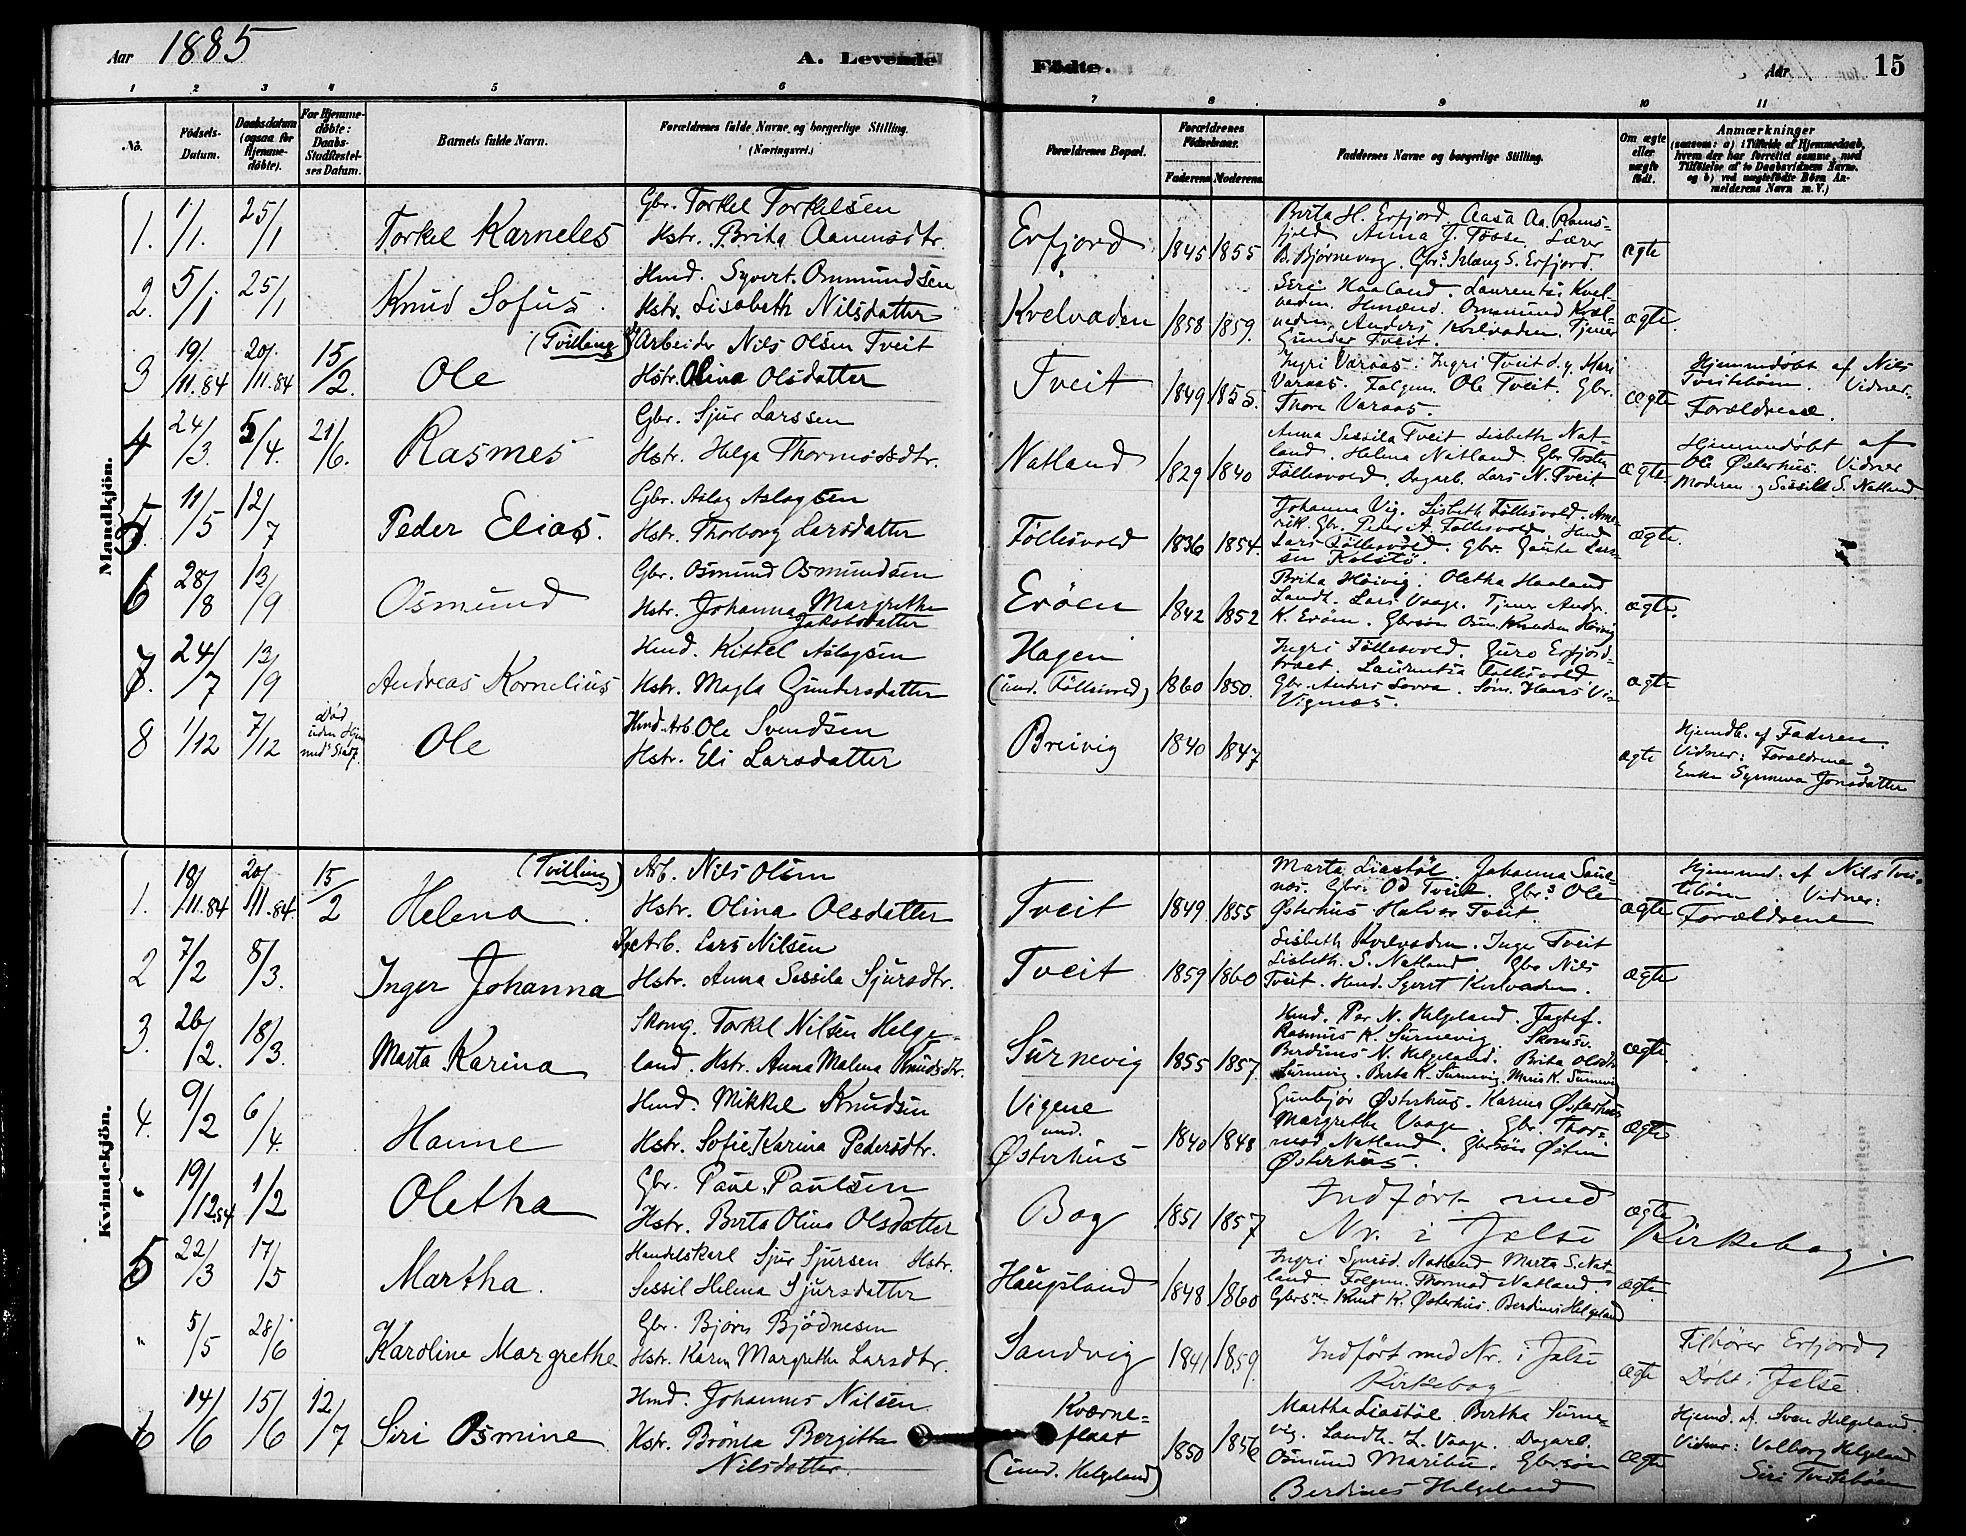 Aar 1885
A. Levende Födte.
Aar
15
1 2 3 4 5 6 7 8 9 10 11
No.
Födsels-Datum.
Daabsdatum (ogsaa for Hjemme-döbte).
For Hjemme-döbte: Daabs-Stadfæstel-ses Datum.
Barnets fulde Navn.
Forældrenes fulde Navne og borgerlige Stilling. (Næringsvei.)
Forældrenes Bopæl.
Forældrenes Födselsaar.
Faderens. Moderens.
Faddernes Navne og borgerlige Stilling.
Om ægte eller uægte födt.
Anmærkninger (saasom: a) i Tilfælde af Hjemmedaab, hvem der har forrettet samme, med Tilföielse af to Daabsvidners Navne, og b) ved uægtefödte Börn An-melderens Navn m. V.)
Mandkjön.
1. 1/1. 25/1 Torkel Karneles
Gbr. Torkel Torkelsen
Hstr. Brita Aanensdtr.
Erfjord 1845 1855
Berta H. Erfjord. Aasa Aa. Rams-
fjeld Anna T. Tösse. Lærer
B. Bjørnevaag. Gbrs. S. Erfjord.
ægte
2. 5/1 25/1 Knud Sofus.
Hmd. Syvert Ommundsen
Hstr. Lisabeth Nilsdatter
Kvelvaden 1858 1859.
Siri Haaland. Laurentsi Kvel-
vaden. Hmænd. Ommund Kvel-
vaden, Anders Kvelvaden. Tjener
Gunder Tveit.
ægte.
3 19/11.84 20/11.84 15/2. Ole (Tvilling)
Arbeider Nils Olsen Tveit
Hstr. Olina Olsdatter
Tveit 1849 1855.
Ingri Varaas. Ingri Tveit d.y. Kari
Varaas. Folgem. Ole Tveit. Gbr.
Thore Varaas.
ægte
Hjemmdøbt af Nils
Tveitebøen. Vidner.
Forældrene.
4 24/3. 5/4. 21/6. Rasmes
Gbr. Sjur Larssen
Hstr. Helga Thormodsdtr.
Natland 1829 1840
Anna Sessila Tveit. Lisbeth Nat-
land. Helena Natland Gbr Tosten
Föllesvold. Dagarb. Lars N. Tveit
ægte
Hjemmdøbt af
Ole Østerhus. Vidner
Moderen og Sessila S. Natland.
5. 11/5 12/7 Peder Elias.
Gbr. Aslag Aslagsen
Hstr. Thorborg Larsdatter
Föllesvold 1836 1854.
Johanna Vig. Lisbeth Föllesvold. Ame-
rik. Gbr. Peder A. Föllesvold. Hmd
Lars Föllesvold. Gbr. Gaute Lars-
sen Kolstø.
ægte.
6 28/8 13/9 Osmund
Gbr. Osmund Osmundsen
Hstr. Johanna Margrethe
Jakobsdatter
Erøen 1842 1852
Brita Høivig. Oletha Haaland
Landh. Lars Vaage. Tjener Andr.
K. Erøen. Gbrsøn Osm. Knudsen Høivig
ægte.
7. 24/7 13/9 Andreas Kornelius
Hmd. Kittel Aslagsen
Hstr. Magla Gundersdatter
Hagen
(und. Föllesvold) 1860 1850.
Ingri Föllesvold. Guro Erfjord-
træet. Laurentsa Föllesvold.
Gbr. Anders Lovra. Søm. Hans
Vignes.
ægte
8 1/12 7/12 Død uden Hjem Stadf. Ole
Hmd. Arb Ole Svendsen
Hstr. Eli Larsdatter
Breivig 1840 1847
ægte
Hjemdb. af Faderen.
Vidner: Forældrene og
Enke Synneva Jonsdatter
Kvindekjön.
1. 18/11.84 20/11.84. 15/2 Helena. (Tvilling)
Arb. Nils Olsen
Hstr. Olina Olsdatter
Tveit 1849 1855
Marta Liastöl. Johanna San-
nes. Gbr. Od Tveit. Gbrs Ole
Østerhus Halvor Tveit.
ægte
Hjemmd. af Nils Tvei-
tebøen Vidner:
Forældrene
2 7/2 8/3. Inger Johanna
Arb. Lars Nilsen
Hstr. Anna Sessila Sjursdtr.
Tveit 1859 1860
Lisbeth Kvelvaden. Inge Tveit
Lisbeth. S. Natland. Gbr Nils
Tveit. Hmd. Syvert Kvelvaden.
ægte
3. 26/2. 18/3. Marta Karina
Skomg. Torkel Nilsen Helge-
land. Hstr. Anna Malena Knudsdtr.
Surnevig 1855 1857.
Hmd. Per N. Helgeland. Jagtef.
Rasmus K. Surnevig. Skomv.
Berdines N. Helgeland. Brita Olsdtr
Surnevig. Berta K. Surnevig. Maria K. Surnevig
ægte
4. 9/2 6/4. Hanne
Hmd. Mikkel Knudsen
Hstr. Sofie Karina Pedersdtr.
Vigene
und.
Østerhus 1840 1848
Gunbjör Østerhus. Karina Østerhus
Margrethe Vaage. Gbr. Thor-
mod Natland. Gbrsøn Østen
Østerhus.
ægte
" 19/12.84 1/2 Oletha
Gbr. Paul Paulsen
Hstr. Berta Olina Olsdatter
Bog 1851 1857
Indført med
Nr. i Jelse Kirkebog.
ægte
5 22/3 17/5 Martha.
Handelskarl Sjur Sjursen Hstr.
Sessil Helena Sjursdatter
Haugsland 1848 1860
Ingri Sjursd. Natland Marta S. Nat-
land. Folgem. Thormod Natland
Gbrs. Knut K. Østerhus. Berdines Helgeland
ægte.
" 5/5 28/6 Karoline Margrethe
Gbr. Bjørn Bjødnesen
Hstr. Karen Margrethe Larsdtr.
Sandvig 1841 1859.
Indført med Nr. i Jelse
Kirkebog
ægte
Tilhører Erfjord
Døbt i Jelse.
6 14/6 15/6 12/7 Siri Osmine
Hmd. Johannes Nilsen
Hstr. Brönla Bergitta
Nilsdatter.
Kværne-
flaat
(und. Helgeland) 1850 1856
Martha Liastöl. Bertha Surne-
vig. Landh. L. Vaage. Dagarb.
Osmund Maribu. Gbrsøn
Berdines Helgeland
ægte
Hjemd. af. Sven Helgeland.
Vidner: Valborg Helgeland
Siri Tveitebøen